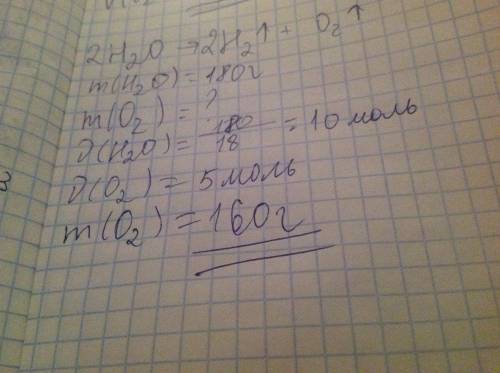 2H₂O → 2H₂↑ + O₂↑
m(H₂O) = 180г
m(O₂) = ?
ν(H₂O) = 180/18 = 10 моль
ν(O₂) = 5 моль
m(O₂) = 160г